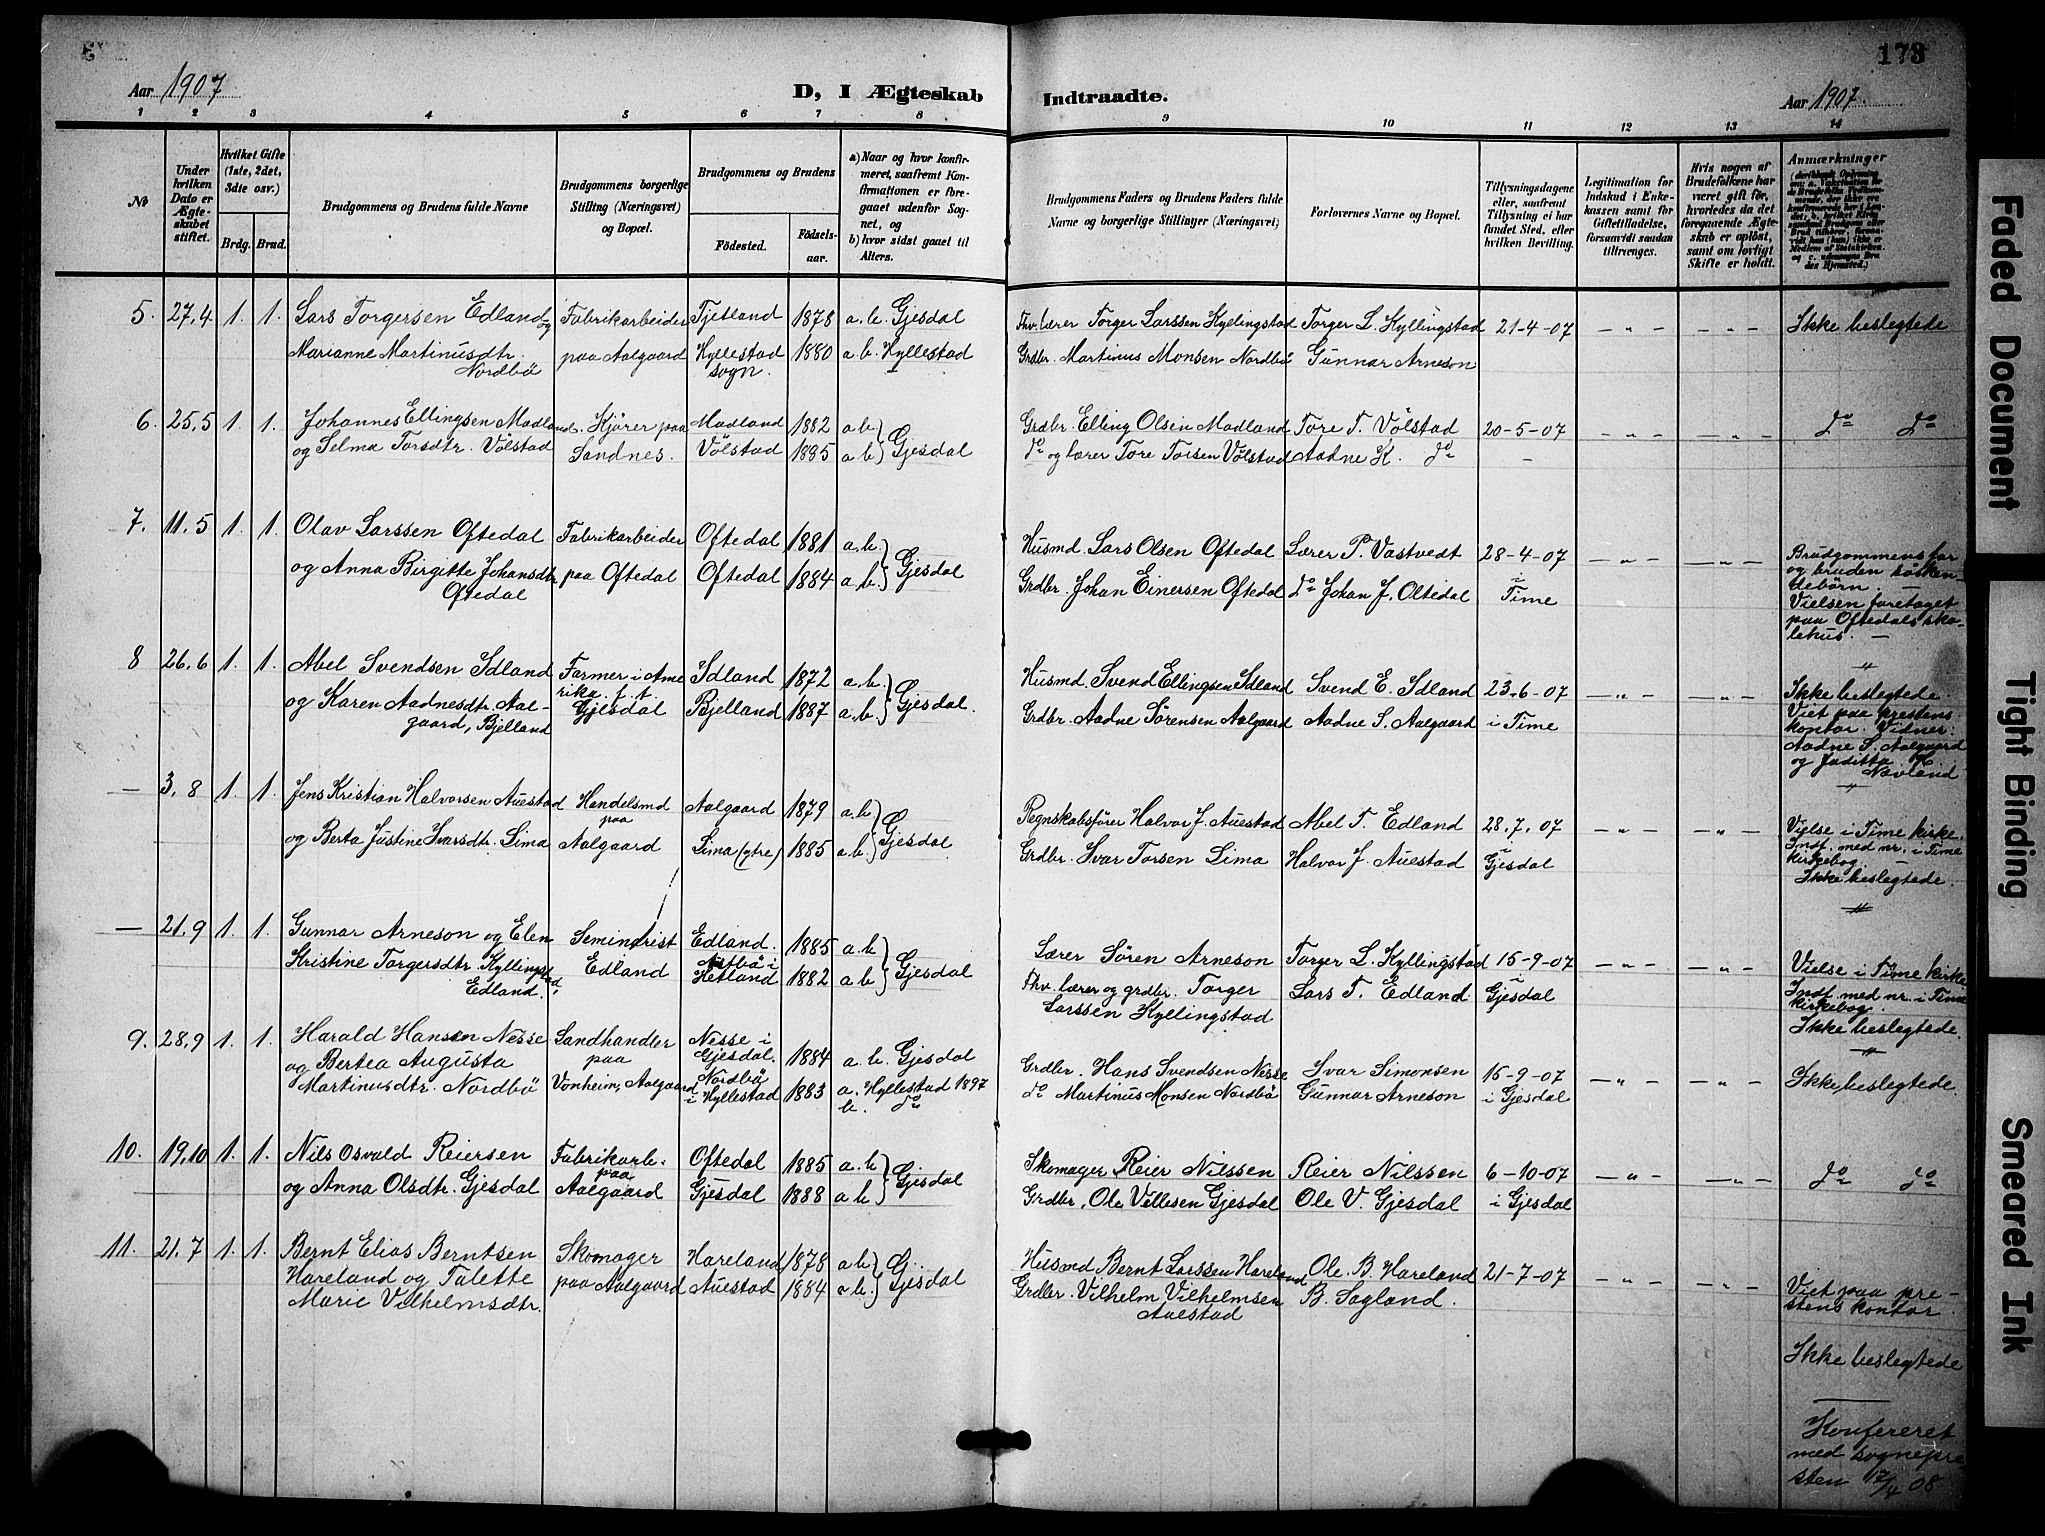 173
Aar 1907
D, I Ægteskab Indtraadte.
Aar 1907.
1 2 3 4 5 6 7 8 9 10 11 12 13 14
No
Under hvilken Dato er Ægteskabet stiftet.
Hvilket Gifte (1ste, 2det, 3die osv.)
Brdg. Brud.
Brudgommens og Brudens fulde Navne
Brudgommens borgerlige Stilling (Næringsvei) og Bopæl.
Brudgommens og Brudens
Födested.
Födsels-aar.
a) Naar og hvor konfirmeret, saafremt Konfirmationen er foregaaet udenfor Sognet, og
b) hvor sidst gaaet til Alters.
Brudgommens Faders og Brudens Faders fulde Navne og borgerlige Stillinger (Næringsvei)
Forlovernes Navne og Bopæl.
Tillysningsdagene eller, saafremt Tillysning ei har fundet Sted, efter hvilken Bevilling.
Legitimation for Indskud i Enkekassen samt for Giftetilladelse, forsaavidt saadan tiltrænges.
Hvis nogen af Brudefolkene har været gift før, hvorledes da det foregaaende Ægteskab er opløst, samt om lovligt Skifte er holdt.
Anmærkninger
5. 27.4 1. 1. Lars Torgersen Edland og Fabrikarbeider Tjetland 1878 a.b. Gjesdal Fhv. lærer Torger Larssen Kyllingstad Torger L. Kyllingstad 21-4-07 — „ — — „ — Ikke beslegtede
Marianne Martinusdtr. Nordbö paa Aalgaard Hyllestad sogn. 1880 a.b. Hyllestad Grdbr. Martinus Monsen Nordbö Gunnar Arneson
6. 25.5 1. 1. Johannes Ellingsen Madland. Kjörer paa Madland 1882 a b Gjesdal Grdbr. Elling Olsen Madland Tore T. Völstad 20-5-07 — „ — — „ — do do
og Selma Torsdtr. Völstad Sandnes. Völstad 1885 a b do og lærer Tore Torsen Völstad Aadne K. do
7. 11.5 1. 1. Olav Larssen Oftedal Fabrikarbeider Oftedal 1881 a.b. Gjesdal Husmd. Lars Olsen Oftedal Lærer P. Vastvedt 28-4-07 — „ — — „ — Brudgommens far
og Anna Birgitte Johansdtr. Oftedal paa Oftedal Oftedal 1884 a.b. Grdbr. Johan Einersen Oftedal do Johan J. Oltedal i Time og bruden sösken-
debörn. —
Vielsen foretaget
paa Oftedals sko-
lehus. —
8 26.6 1. 1. Abel Svendsen Idland Farmer i Ame Idland 1872 a.b. Gjesdal. Husmd. Svend Ellingsen Idland Svend E. Idland 23-6-07 — „ — — „ — Ikke beslegtede
og Karen Aadnesdtr. Aal- rika. f. t. Bjelland 1887 a.b. Grdbr. Aadne Sörensen Aalgaard Aadne S. Aalgaard i Time Viet paa prestens
gaard, Bjelland Gjesdal kontor. Vidner:
Aadne S. Aalgaard
og Juditta
Navland
— 3.8 1. 1. Jens Kristian Halvorsen Auestad Handelsmd Aalgaard 1879 a.b Gjesdal Regnskabsfører Halvor J. Auestad Abel T. Edland 28.7.07 — „ — — „ — Vielse i Time kirke.
og Berta Justine Ivarsdtr. Lima paa Aalgaard Lima (ytre) 1885 a b. Grdbr. Ivar Torsen Lima Halvor J. Auestad i Gjesdal Indf. med nr. i Time
kirkebog. —
Ikke beslegtede.
— 21.9 1. 1. Gunnar Arneson og Elen Seminarist Edland. 1885 a b Gjesdal Lærer Sören Arneson Torger L. Kyllingstad 15-9-07 — „ — — „ — Vielse i Time kirke
Kristine Torgersdtr. Kyllingstad, Edland. Edland i Hetland 1882 a b Fhv. lærer og grdbr. Torger Larssen Kyllingstad Lars T. Edland i Gjesdal Indf. med nr. i Time
kirkebog.
Ikke beslegtede.
9. 28.9 1. 1. Harald Hansen Nesse Landhandler Nesse i Gjesdal. 1884 a.b. Gjesdal Grdbr. Hans Svendsen Nesse Ivar Simonsen 15-9-07 — „ — — „ — Ikke beslegtede.
og Bertea Augusta paa
Martinusdtr. Nordbö Vonheim, Aalgaard Nordbö i Hyllestad 1883 a. Hyllestad 1897 b. do do Martinus Monsen Nordbö Gunnar Arneson i Gjesdal
10. 19.10 1. 1. Nils Osvald Reiersen Fabrikarb. Oftedal 1885 a.b Gjesdal Skomager Reier Nilssen Reier Nilssen 6-10-07 — „ — — „ — do do
og Anna Olsdtr. Gjesdal paa Aalgaard Gjesdal 1888 a b Grdbr. Ole Villesen Gjesdal Ole V. Gjesdal i Gjesdal
11. 21.7 1. 1. Bernt Elias Berntsen Skomager Hareland 1878 a b Gjesdal Husmd Bernt Larssen Hareland Ole B. Hareland 21-7-07 — „ — — „ — Viet paa pre-
Hareland og Talette paa Aalgaard Auestad 1884 a b. Grdbr. Vilhelm Vilhelmsen Auestad B. Sagland. stens kontor
Marie Vilhelmsdtr.
Ikke beslegtede
Konfereret
med sognepre
sten 12/4 08
Faded Document
Tight Binding
Smeared Ink